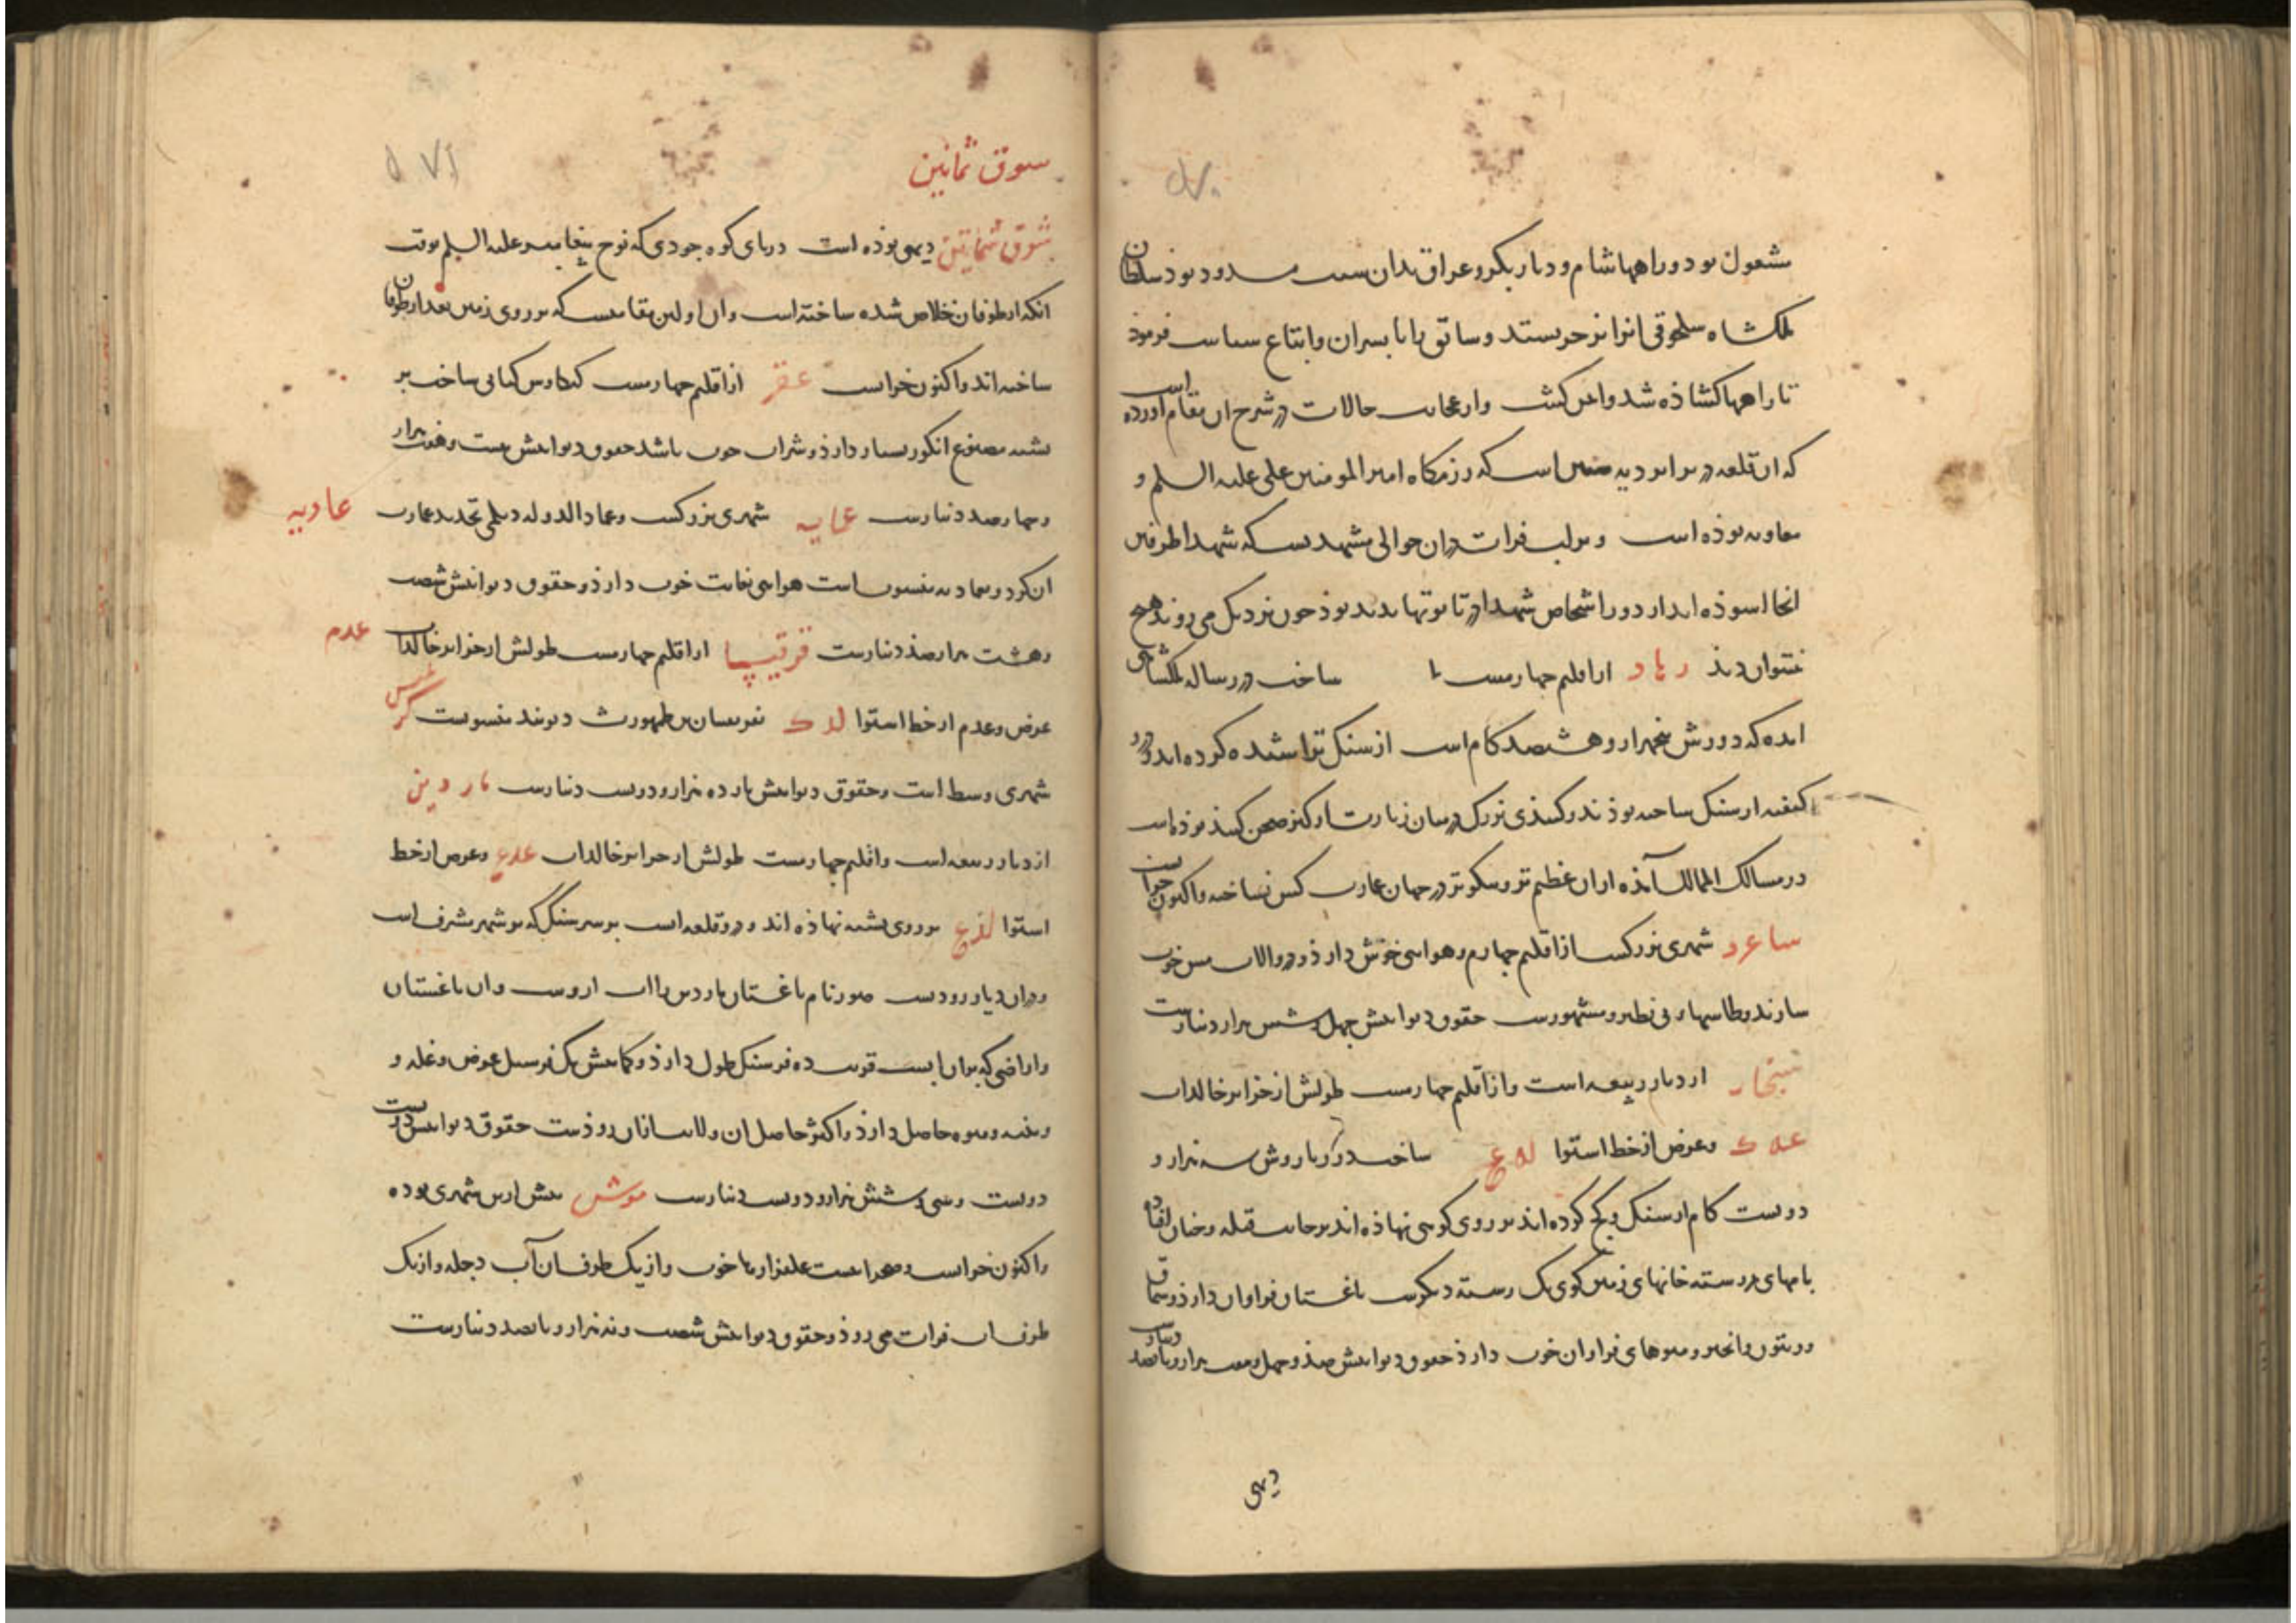 مشغول بود و راهها شام و دیار بکر و عراق بدان سبب مسدود بوذ سلطان
ملکشاه سلجوقی انرا بر حرب بستد و سابق را با پسران و اتباع سیاست فرموذ
تا راهها کشاذه شد و امن کشت و از عجایب حالات در شرح ان مقام اورده است
که ان قلعه در برابر دیه صفین است که رزمکاه امیر المومنین علی علیه السلم و
معاویه بوذه است و بر لب فرات دران حوالی مشهدیست که شهدا طرفین
انجا اسوذه اند از دور اشخاص شهدا در تابوتها بدید بوذ چون نزدیک می روند هیچ
نتوان دید رها از اقلیم چهارمست ساخت در رساله ملکشاهی
امده که دورش پنجهزار و هشتصد کام است از سنک تراشیده کرده اند و درو
کنیسه از سنک ساخته بوذند و کنبذی بزرک در میان زیادت از کز صحن کنبذ بوذه است
در مسالک الممالک آمذه از ان عظیم تر و نیکوتر در جهان عمارت کس نساخته و اکنون خرابست
ساعرد شهری بزرکست از اقلیم چهارم و هوایی خوش دارذ و در و الات مس خوب
سازند و طاسهاء بی نظیر و مشهورست حقوق دیوانیش چهل و شش هزار دینارست
سنجار از دیار ربیعه است و از اقلیم چهارمست طولش از جزایر خالدات
عه ک و عرض از خط استوا له ع ساخت دور باروش سه هزار و
دویست کام از سنک و کج کرده اند بر روی کوهی نهاذه اند بر جانب قبله و چنان افتاده
بامهای هر رسته خانهای زمین کوی یک رسته دیکرست باغستان فراوان دارذ و سماق
و زیتون و انجیر و میوهای فراوان خوب دارذ حقوق دیوانیش صذ و چهل و هفت هزار و پانصد دینارست
دیهی
سوق ثمانین
سوق ثمانین دیهی بوذه است در پای کوه جودی که نوح پیغامبر علیه السلم بوقت
انکه از طوفان خلاص شده ساخته است و ان اولین مقامیست که بر روی زمین بعد از طوفان
ساخته اند و اکنون خرابست عقر از اقلیم چهارمست کیکاوس کیانی ساخت بر
پشته مصنوع انکور بسیار دارذ و شراب خوب باشد حقوق دیوانیش بیست و هفت هزار
و چهارصد دینارست عمادیه شهری بزرکست و عماد الدوله دیلمی تجدید عمارت عمادیه
ان کرد و بعمادیه منسوب است هوایی بغایت خوب دارذ و حقوق دیوانیش شصت
و هشت هزار صذ دینارست قرقیسیا از اقلیم چهارمست طولش از جزایر خالدات عدم
عرض و عدم از خط استوا لد ک بقرقیسان بن طهمورث دیوبند منسوبست
شهری وسط است و حقوق دیوانیش یازده هزار و دویست دینارست ماردین
از دیار ربیعه است و اقلیم چهارمست طولش از جزایر خالدات عدع و عرض از خط
استوا لدع بر روی پشته نهاذه اند و درو قلعه است بر سر سنکی که بر شهر مشرف است
و دران دیار رودیست صور نام باغستان ماردین را اب ازوست و ان باغستان
و اراضی که بران ابست قرب ده فرسنک طول دارذ و کمابیش یک فرسنک عرض و غله و
پنبه و میوه حاصل دارذ و اکثر حاصل ان ولایت ازان روذست حقوق دیوانیش دویست
دویست و سی و شش هزار و دویست دینارست موش پیش ازین شهری بوده
و اکنون خرابست و صحرایست علفزارها خوب و از یک طرف ان آب دجله و از یک
طرف اب فرات می روذ و حقوق دیوانیش شصت و نه هزار و پانصد دینارست